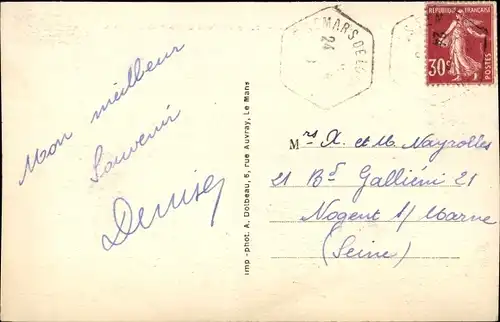 Mon meilleur
Souvenir
Denise
Imp.-phot. A. Dolbeau, 5, rue Auvray, Le Mans
REPUBLIQUE FRANÇAISE
30c
POSTES
MARS DE
24
Mrs X. et M. Nayrolles
21 Bd Galliéni 21
Nogent s/ Marne
(Seine)